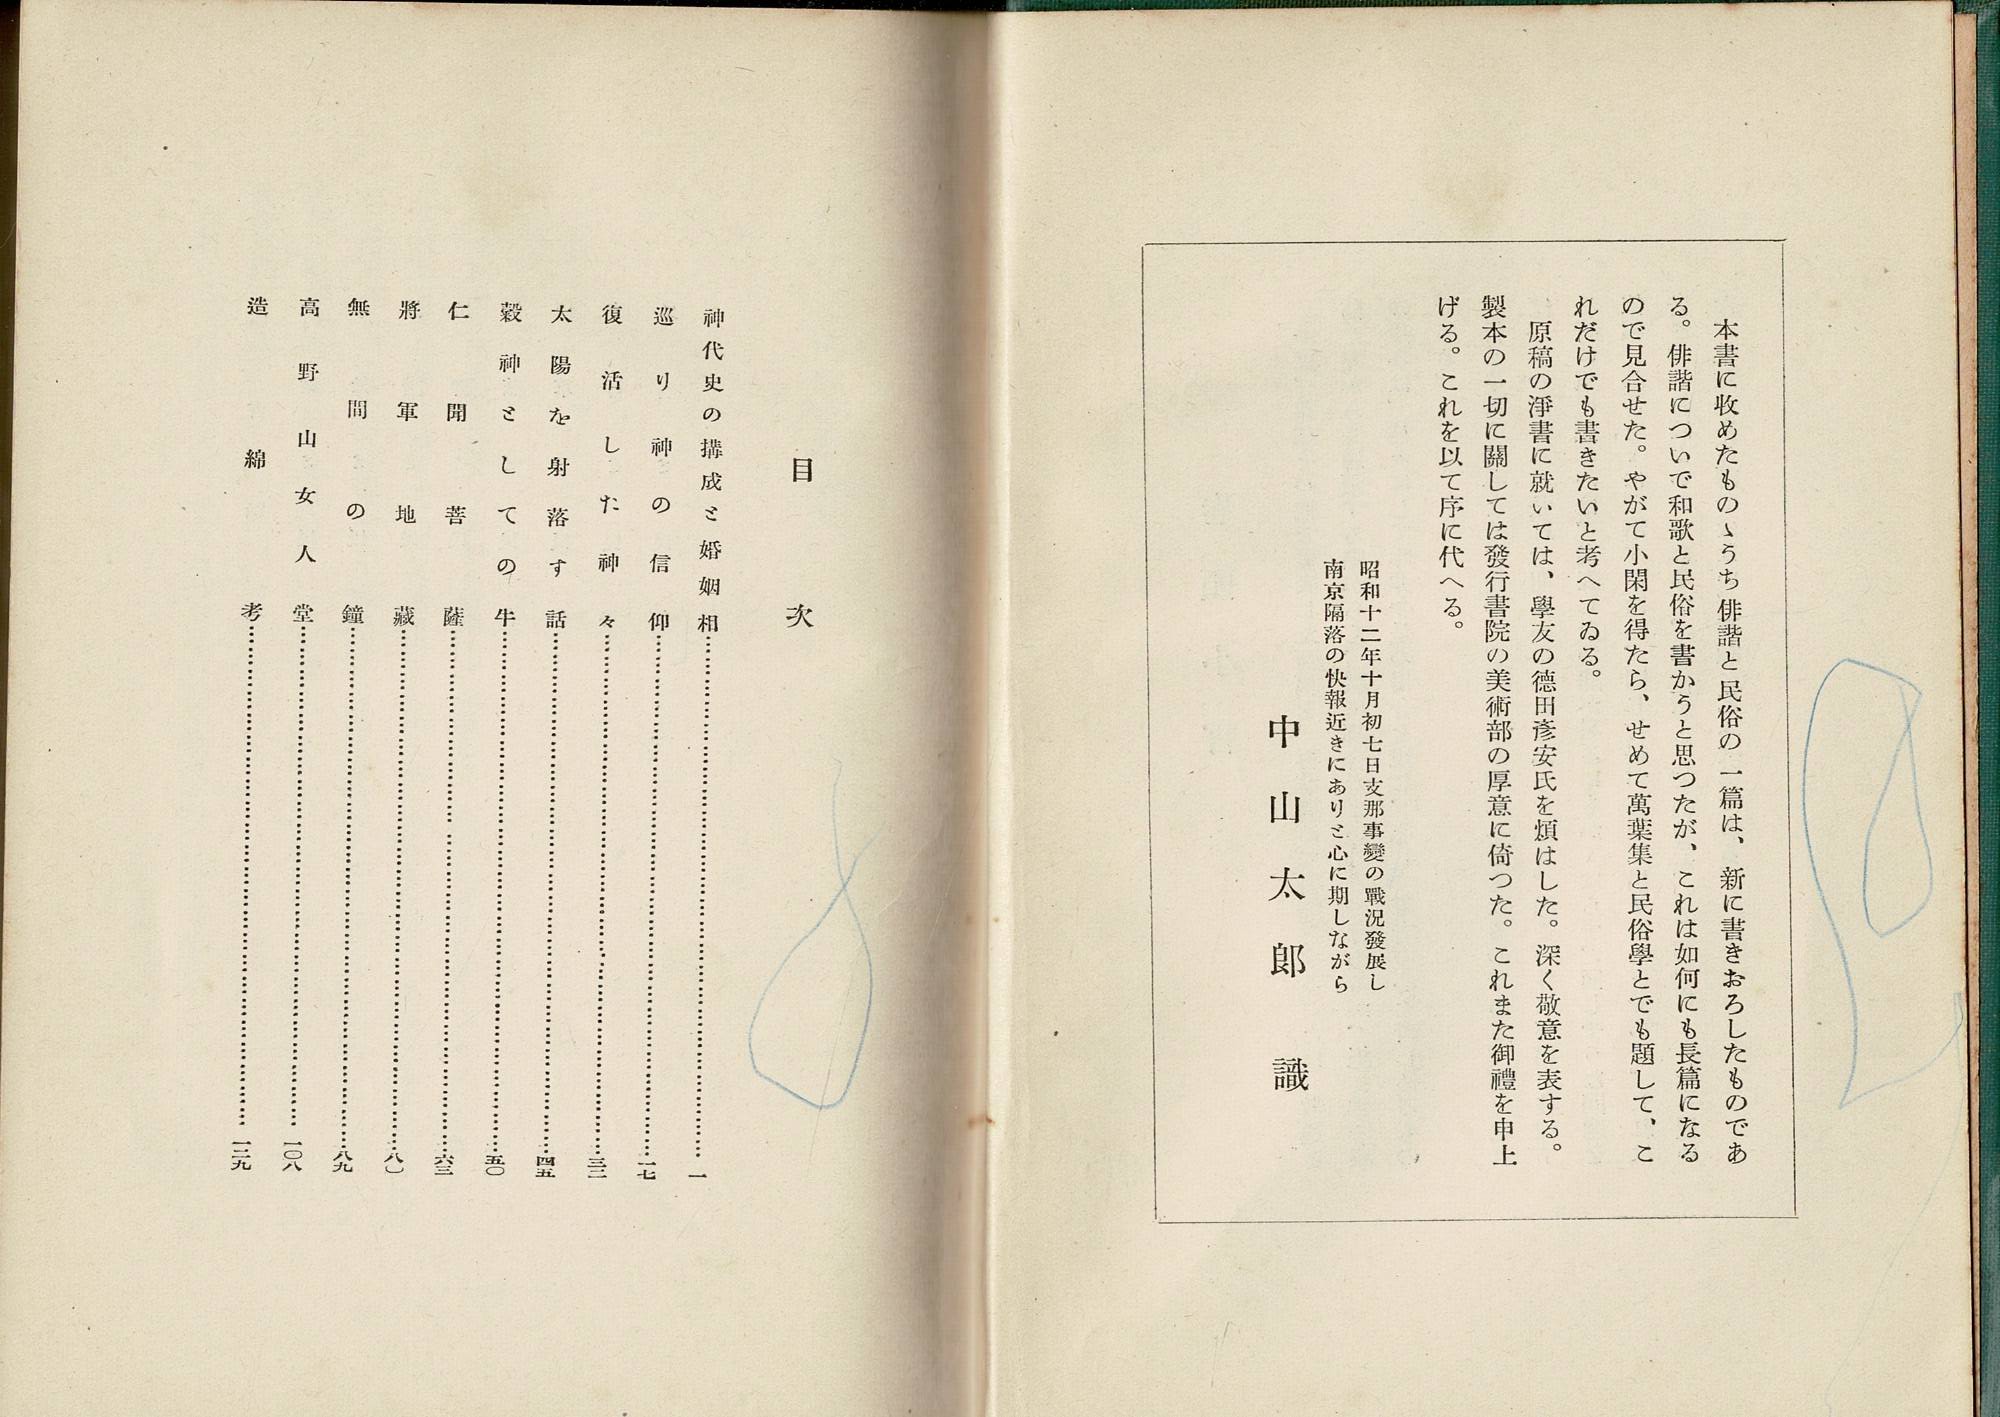 本書に收めたものゝうち俳諧と民俗の一篇は、新に書きおろしたものであ
る。俳諧についで和歌と民俗を書かうと思つたが、これは如何にも長篇になる
ので見合せた。やがて小閑を得たら、せめて萬葉集と民俗學とでも題して、こ
れだけでも書きたいと考へてゐる。
原稿の淨書に就いては、學友の德田彥安氏を煩はした。深く敬意を表する。
製本の一切に關しては發行書院の美術部の厚意に倚つた。これまた御禮を申上
げる。これを以て序に代へる。
昭和十二年十月初七日支那事變の戰況發展し
南京隔落の快報近きにありと心に期しながら
中山太郎 識
目次
神代史の搆成と婚姻相……一
巡り神の信仰……一七
復活した神々……三二
太陽を射落す話……四五
穀神としての牛……五〇
仁聞菩薩……六三
將軍地藏……八〇
無間の鐘……八九
高野山女人堂……一〇八
造綿考……一二九